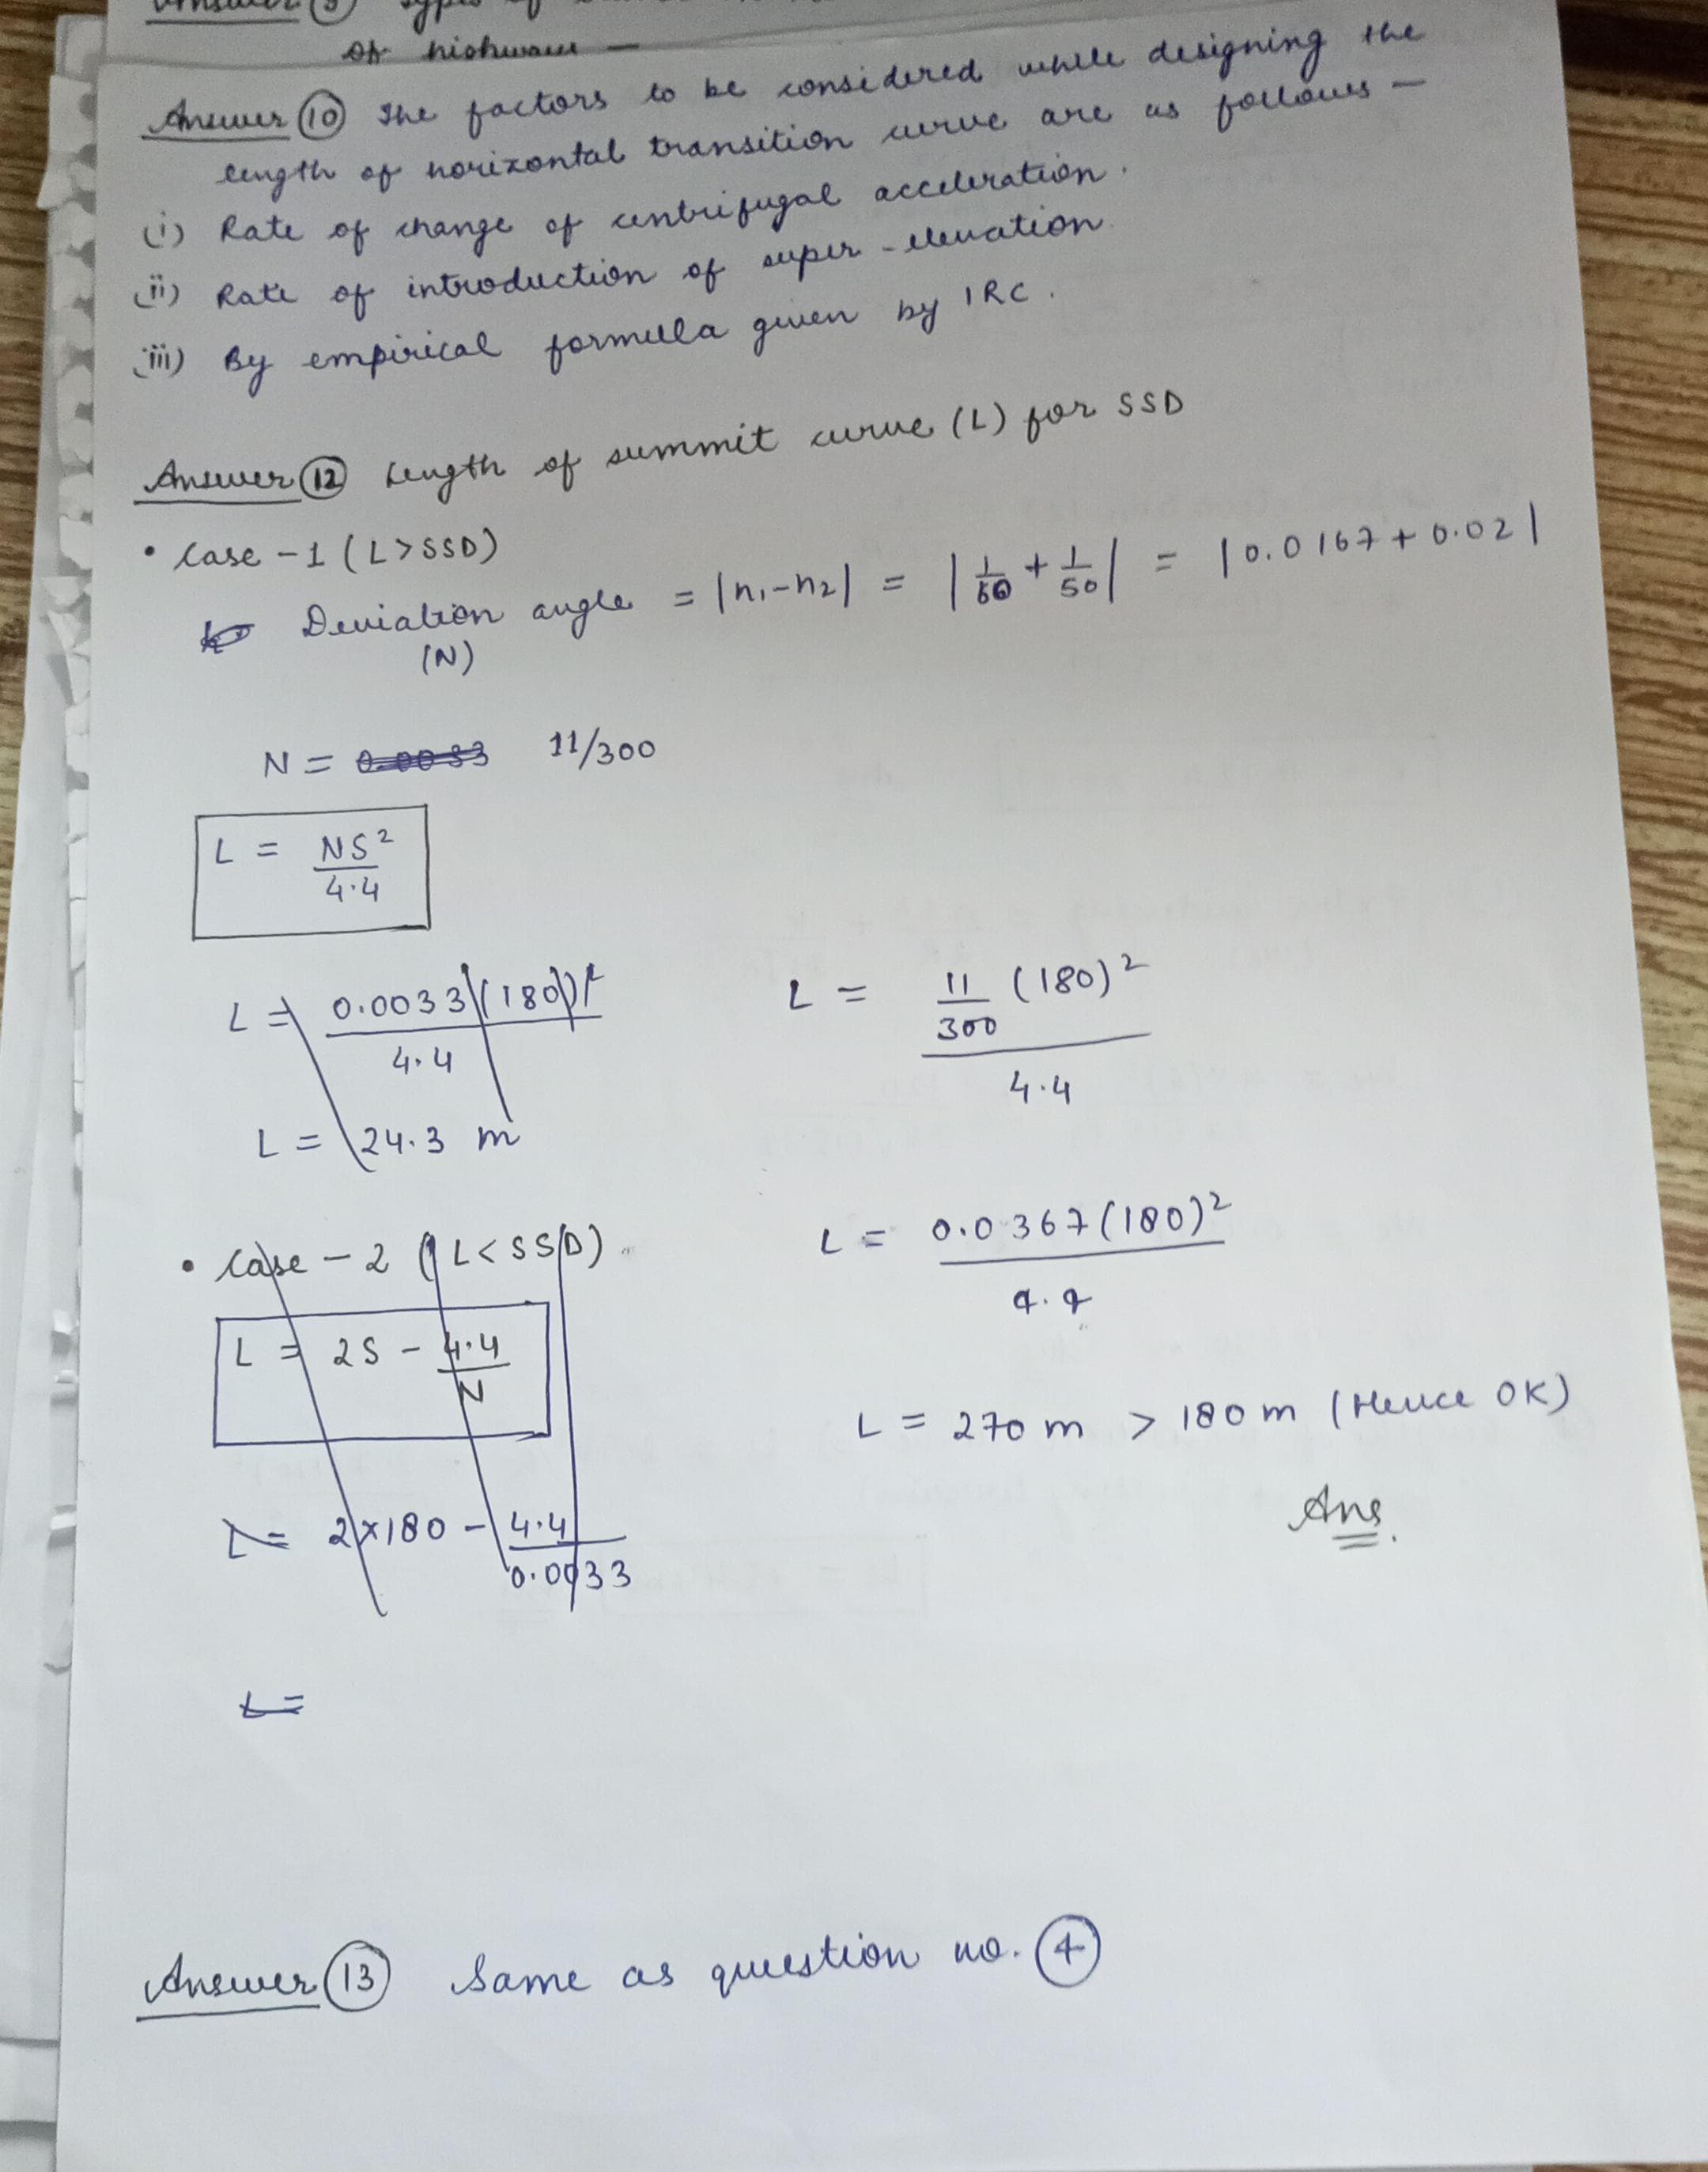 of highways —
Answer (10) The factors to be considered while designing the
length of horizontal transition curve are as follows —
(i) Rate of change of centrifugal acceleration.
(ii) Rate of introduction of super-elevation.
(iii) By empirical formula given by IRC.
Answer (12) Length of summit curve (L) for SSD
• Case - 1 (L > SSD)
Deviation angle = |n₁ - n₂| = |1/60 + 1/50| = |0.0167 + 0.02|
(N)
N = 0.0033 11/300
L = NS²/4.4
L = 0.0033 (180)²/4.4
L = 24.3 m
L = 11/300 (180)²/4.4
• Case - 2 (L < SSD)
L = 2S - 4.4/N
L = 2×180 - 4.4/0.0033
L =
L = 0.0367 (180)²/4.4
L = 270 m > 180 m (Hence OK)
Ans.
Answer (13) Same as question no. (4)